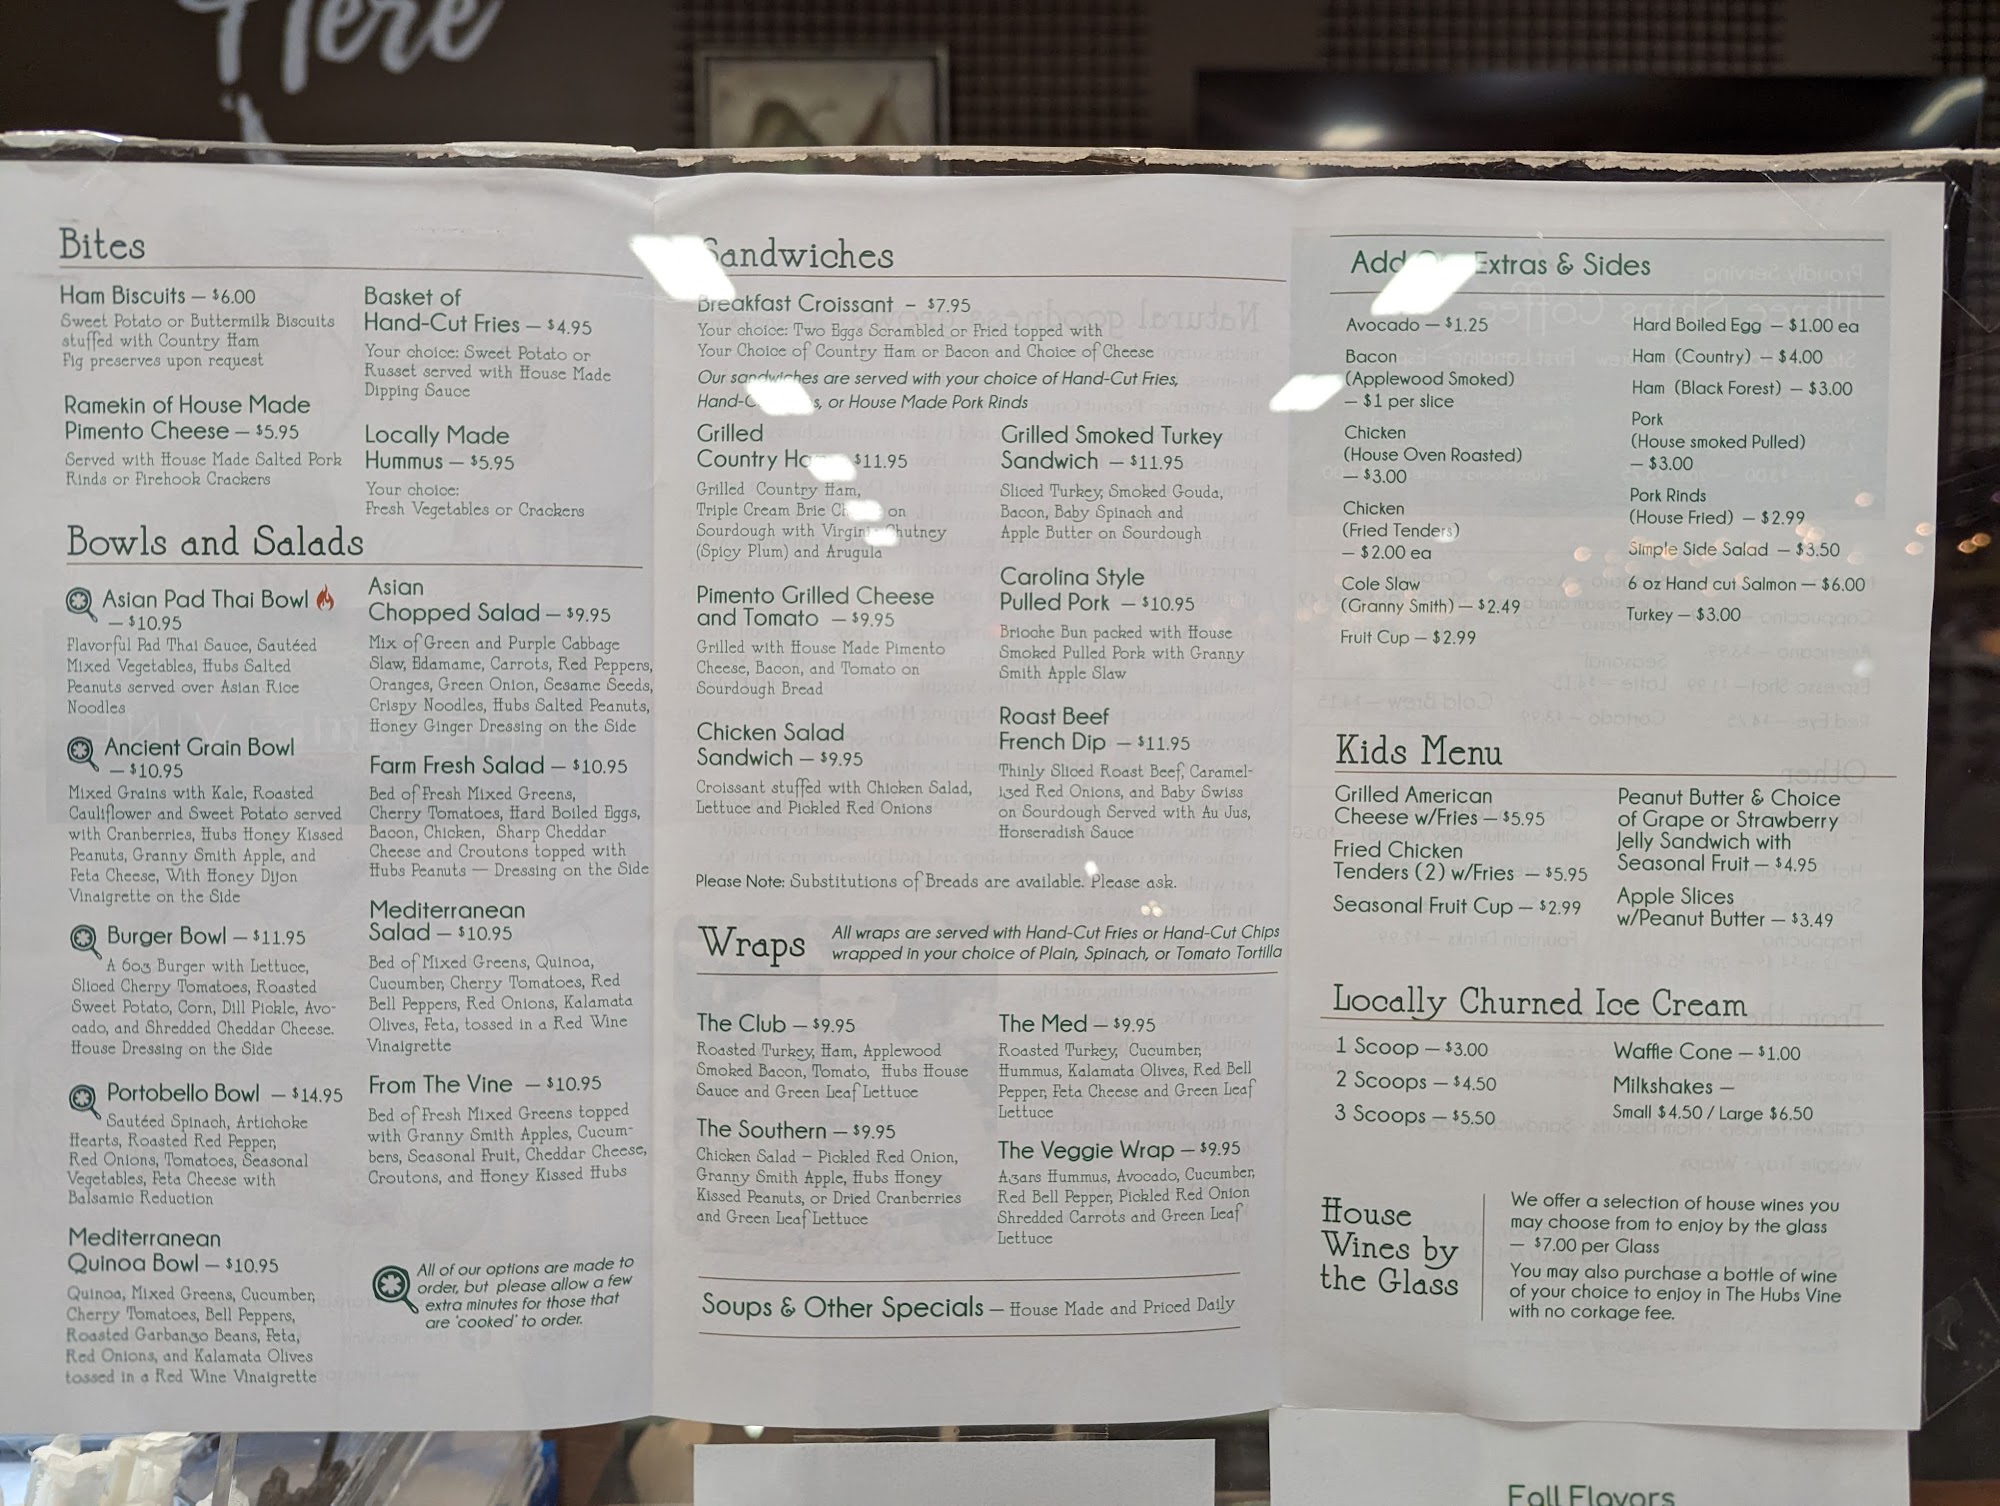 Here
Bites
Ham Biscuits — $6.00
Sweet Potato or Buttermilk Biscuits
stuffed with Country Ham
Fig preserves upon request
Ramekin of House Made
Pimento Cheese — $5.95
Served with House Made Salted Pork
Rinds or Firehook Crackers
Basket of
Hand-Cut Fries — $4.95
Your choice: Sweet Potato or
Russet served with House Made
Dipping Sauce
Locally Made
Hummus — $5.95
Your choice:
Fresh Vegetables or Crackers
Bowls and Salads
Asian Pad Thai Bowl
— $10.95
Flavorful Pad Thai Sauce, Sautéed
Mixed Vegetables, Hubs Salted
Peanuts served over Asian Rice
Noodles
Ancient Grain Bowl
— $10.95
Mixed Grains with Kale, Roasted
Cauliflower and Sweet Potato served
with Cranberries, Hubs Honey Kissed
Peanuts, Granny Smith Apple, and
Feta Cheese, With Honey Dijon
Vinaigrette on the Side
Burger Bowl — $11.95
A 6oz Burger with Lettuce,
Sliced Cherry Tomatoes, Roasted
Sweet Potato, Corn, Dill Pickle, Avo-
cado, and Shredded Cheddar Cheese.
House Dressing on the Side
Portobello Bowl — $14.95
Sautéed Spinach, Artichoke
Hearts, Roasted Red Pepper,
Red Onions, Tomatoes, Seasonal
Vegetables, Feta Cheese with
Balsamic Reduction
Mediterranean
Quinoa Bowl — $10.95
Quinoa, Mixed Greens, Cucumber,
Cherry Tomatoes, Bell Peppers,
Roasted Garbanzo Beans, Feta,
Red Onions, and Kalamata Olives
tossed in a Red Wine Vinaigrette
Asian
Chopped Salad — $9.95
Mix of Green and Purple Cabbage
Slaw, Edamame, Carrots, Red Peppers,
Oranges, Green Onion, Sesame Seeds,
Crispy Noodles, Hubs Salted Peanuts,
Honey Ginger Dressing on the Side
Farm Fresh Salad — $10.95
Bed of Fresh Mixed Greens,
Cherry Tomatoes, Hard Boiled Eggs,
Bacon, Chicken, Sharp Cheddar
Cheese and Croutons topped with
Hubs Peanuts — Dressing on the Side
Mediterranean
Salad — $10.95
Bed of Mixed Greens, Quinoa,
Cucumber, Cherry Tomatoes, Red
Bell Peppers, Red Onions, Kalamata
Olives, Feta, tossed in a Red Wine
Vinaigrette
From The Vine — $10.95
Bed of Fresh Mixed Greens topped
with Granny Smith Apples, Cucum-
bers, Seasonal Fruit, Cheddar Cheese,
Croutons, and Honey Kissed Hubs
All of our options are made to
order, but please allow a few
extra minutes for those that
are 'cooked' to order.
Sandwiches
Breakfast Croissant – $7.95
Your choice: Two Eggs Scrambled or Fried topped with
Your Choice of Country Ham or Bacon and Choice of Cheese
Our sandwiches are served with your choice of Hand-Cut Fries,
or House Made Pork Rinds
Grilled
Country $11.95
Grilled Country Ham,
Triple Cream Brie on
Sourdough with Virginia Chutney
(Spicy Plum) and Arugula
Pimento Grilled Cheese
and Tomato — $9.95
Grilled with House Made Pimento
Cheese, Bacon, and Tomato on
Sourdough Bread
Chicken Salad
Sandwich — $9.95
Croissant stuffed with Chicken Salad,
Lettuce and Pickled Red Onions
Grilled Smoked Turkey
Sandwich — $11.95
Sliced Turkey, Smoked Gouda,
Bacon, Baby Spinach and
Apple Butter on Sourdough
Carolina Style
Pulled Pork — $10.95
Brioche Bun packed with House
Smoked Pulled Pork with Granny
Smith Apple Slaw
Roast Beef
French Dip — $11.95
Thinly Sliced Roast Beef, Caramel-
ized Red Onions, and Baby Swiss
on Sourdough Served with Au Jus,
Horseradish Sauce
Please Note: Substitutions of Breads are available. Please ask.
Wraps
All wraps are served with Hand-Cut Fries or Hand-Cut Chips
wrapped in your choice of Plain, Spinach, or Tomato Tortilla
The Club — $9.95
Roasted Turkey, Ham, Applewood
Smoked Bacon, Tomato, Hubs House
Sauce and Green Leaf Lettuce
The Southern — $9.95
Chicken Salad – Pickled Red Onion,
Granny Smith Apple, Hubs Honey
Kissed Peanuts, or Dried Cranberries
and Green Leaf Lettuce
The Med — $9.95
Roasted Turkey, Cucumber,
Hummus, Kalamata Olives, Red Bell
Pepper, Feta Cheese and Green Leaf
Lettuce
The Veggie Wrap — $9.95
Azars Hummus, Avocado, Cucumber,
Red Bell Pepper, Pickled Red Onion
Shredded Carrots and Green Leaf
Lettuce
Soups & Other Specials — House Made and Priced Daily
Add Extras & Sides
Avocado — $1.25
Bacon
(Applewood Smoked)
— $1 per slice
Chicken
(House Oven Roasted)
— $3.00
Chicken
(Fried Tenders)
— $2.00 ea
Cole Slaw
(Granny Smith) — $2.49
Fruit Cup — $2.99
Hard Boiled Egg — $1.00 ea
Ham (Country) — $4.00
Ham (Black Forest) — $3.00
Pork
(House smoked Pulled)
— $3.00
Pork Rinds
(House Fried) — $2.99
Simple Side Salad — $3.50
6 oz Hand cut Salmon — $6.00
Turkey — $3.00
Kids Menu
Grilled American
Cheese w/Fries — $5.95
Fried Chicken
Tenders (2) w/Fries — $5.95
Seasonal Fruit Cup — $2.99
Peanut Butter & Choice
of Grape or Strawberry
Jelly Sandwich with
Seasonal Fruit — $4.95
Apple Slices
w/Peanut Butter — $3.49
Locally Churned Ice Cream
1 Scoop — $3.00
2 Scoops — $4.50
3 Scoops — $5.50
Waffle Cone — $1.00
Milkshakes —
Small $4.50 / Large $6.50
House
Wines by
the Glass
We offer a selection of house wines you
may choose from to enjoy by the glass
— $7.00 per Glass
You may also purchase a bottle of wine
of your choice to enjoy in The Hubs Vine
with no corkage fee.
Fall Flavors